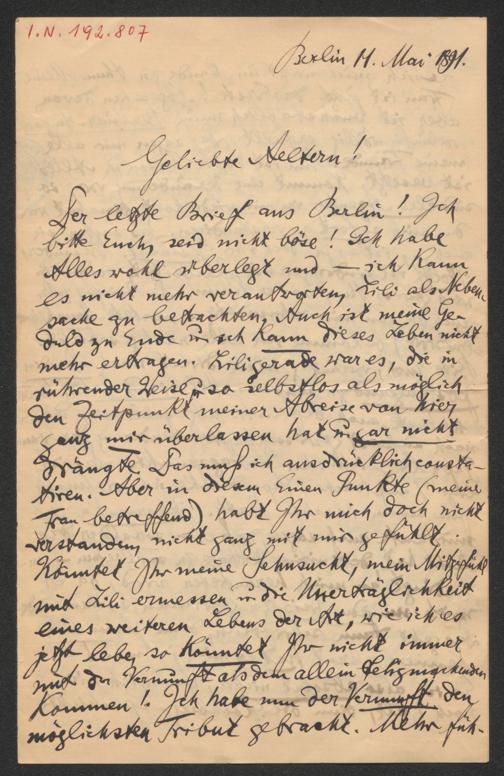 I.N. 192.807
Berlin 11. Mai 1891.
Geliebte Aeltern!
Der letzte Brief aus Berlin! Ich
bitte Euch, seid nicht böse! Ich habe
Alles wohl überlegt und — ich kann
es nicht mehr verantworten, Lili als Neben-
sache zu betrachten. Auch ist meine Ge-
duld zu Ende u. ich kann dieses Leben nicht
mehr ertragen. Lili gerade war es, die in
rührender Weise u. so selbstlos als möglich
den Zeitpunkt meiner Abreise von hier
ganz mir überlassen hat u. gar nicht
drängte. Das muß ich ausdrücklich consta-
tiren. Aber in diesem Einen Punkte (meine
Frau betreffend) habt Ihr mich doch nicht
verstanden, nicht ganz mit mir gefühlt.
Könntet Ihr meine Sehnsucht, mein Mitgefühl
mit Lili ermessen u. die Unerträglichkeit
eines weiteren Lebens der Art, wie ich es
jetzt lebe, so könntet Ihr nicht immer
mit der Vernunft als dem allein
kommen! Ich habe nun der Vernunft den
möglichsten Tribut gebracht. Mehr füh-